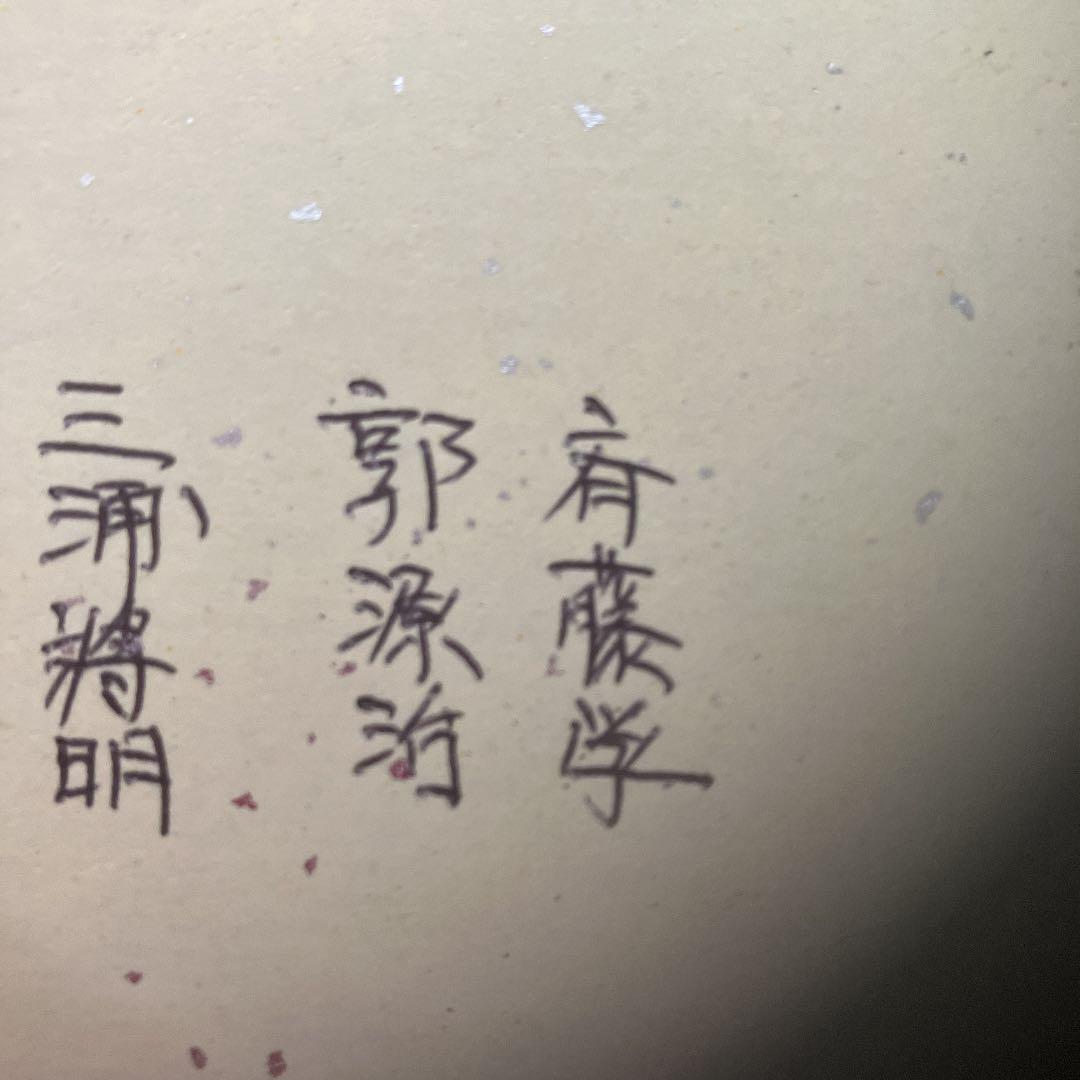 斉藤学
郭源治
三浦将明